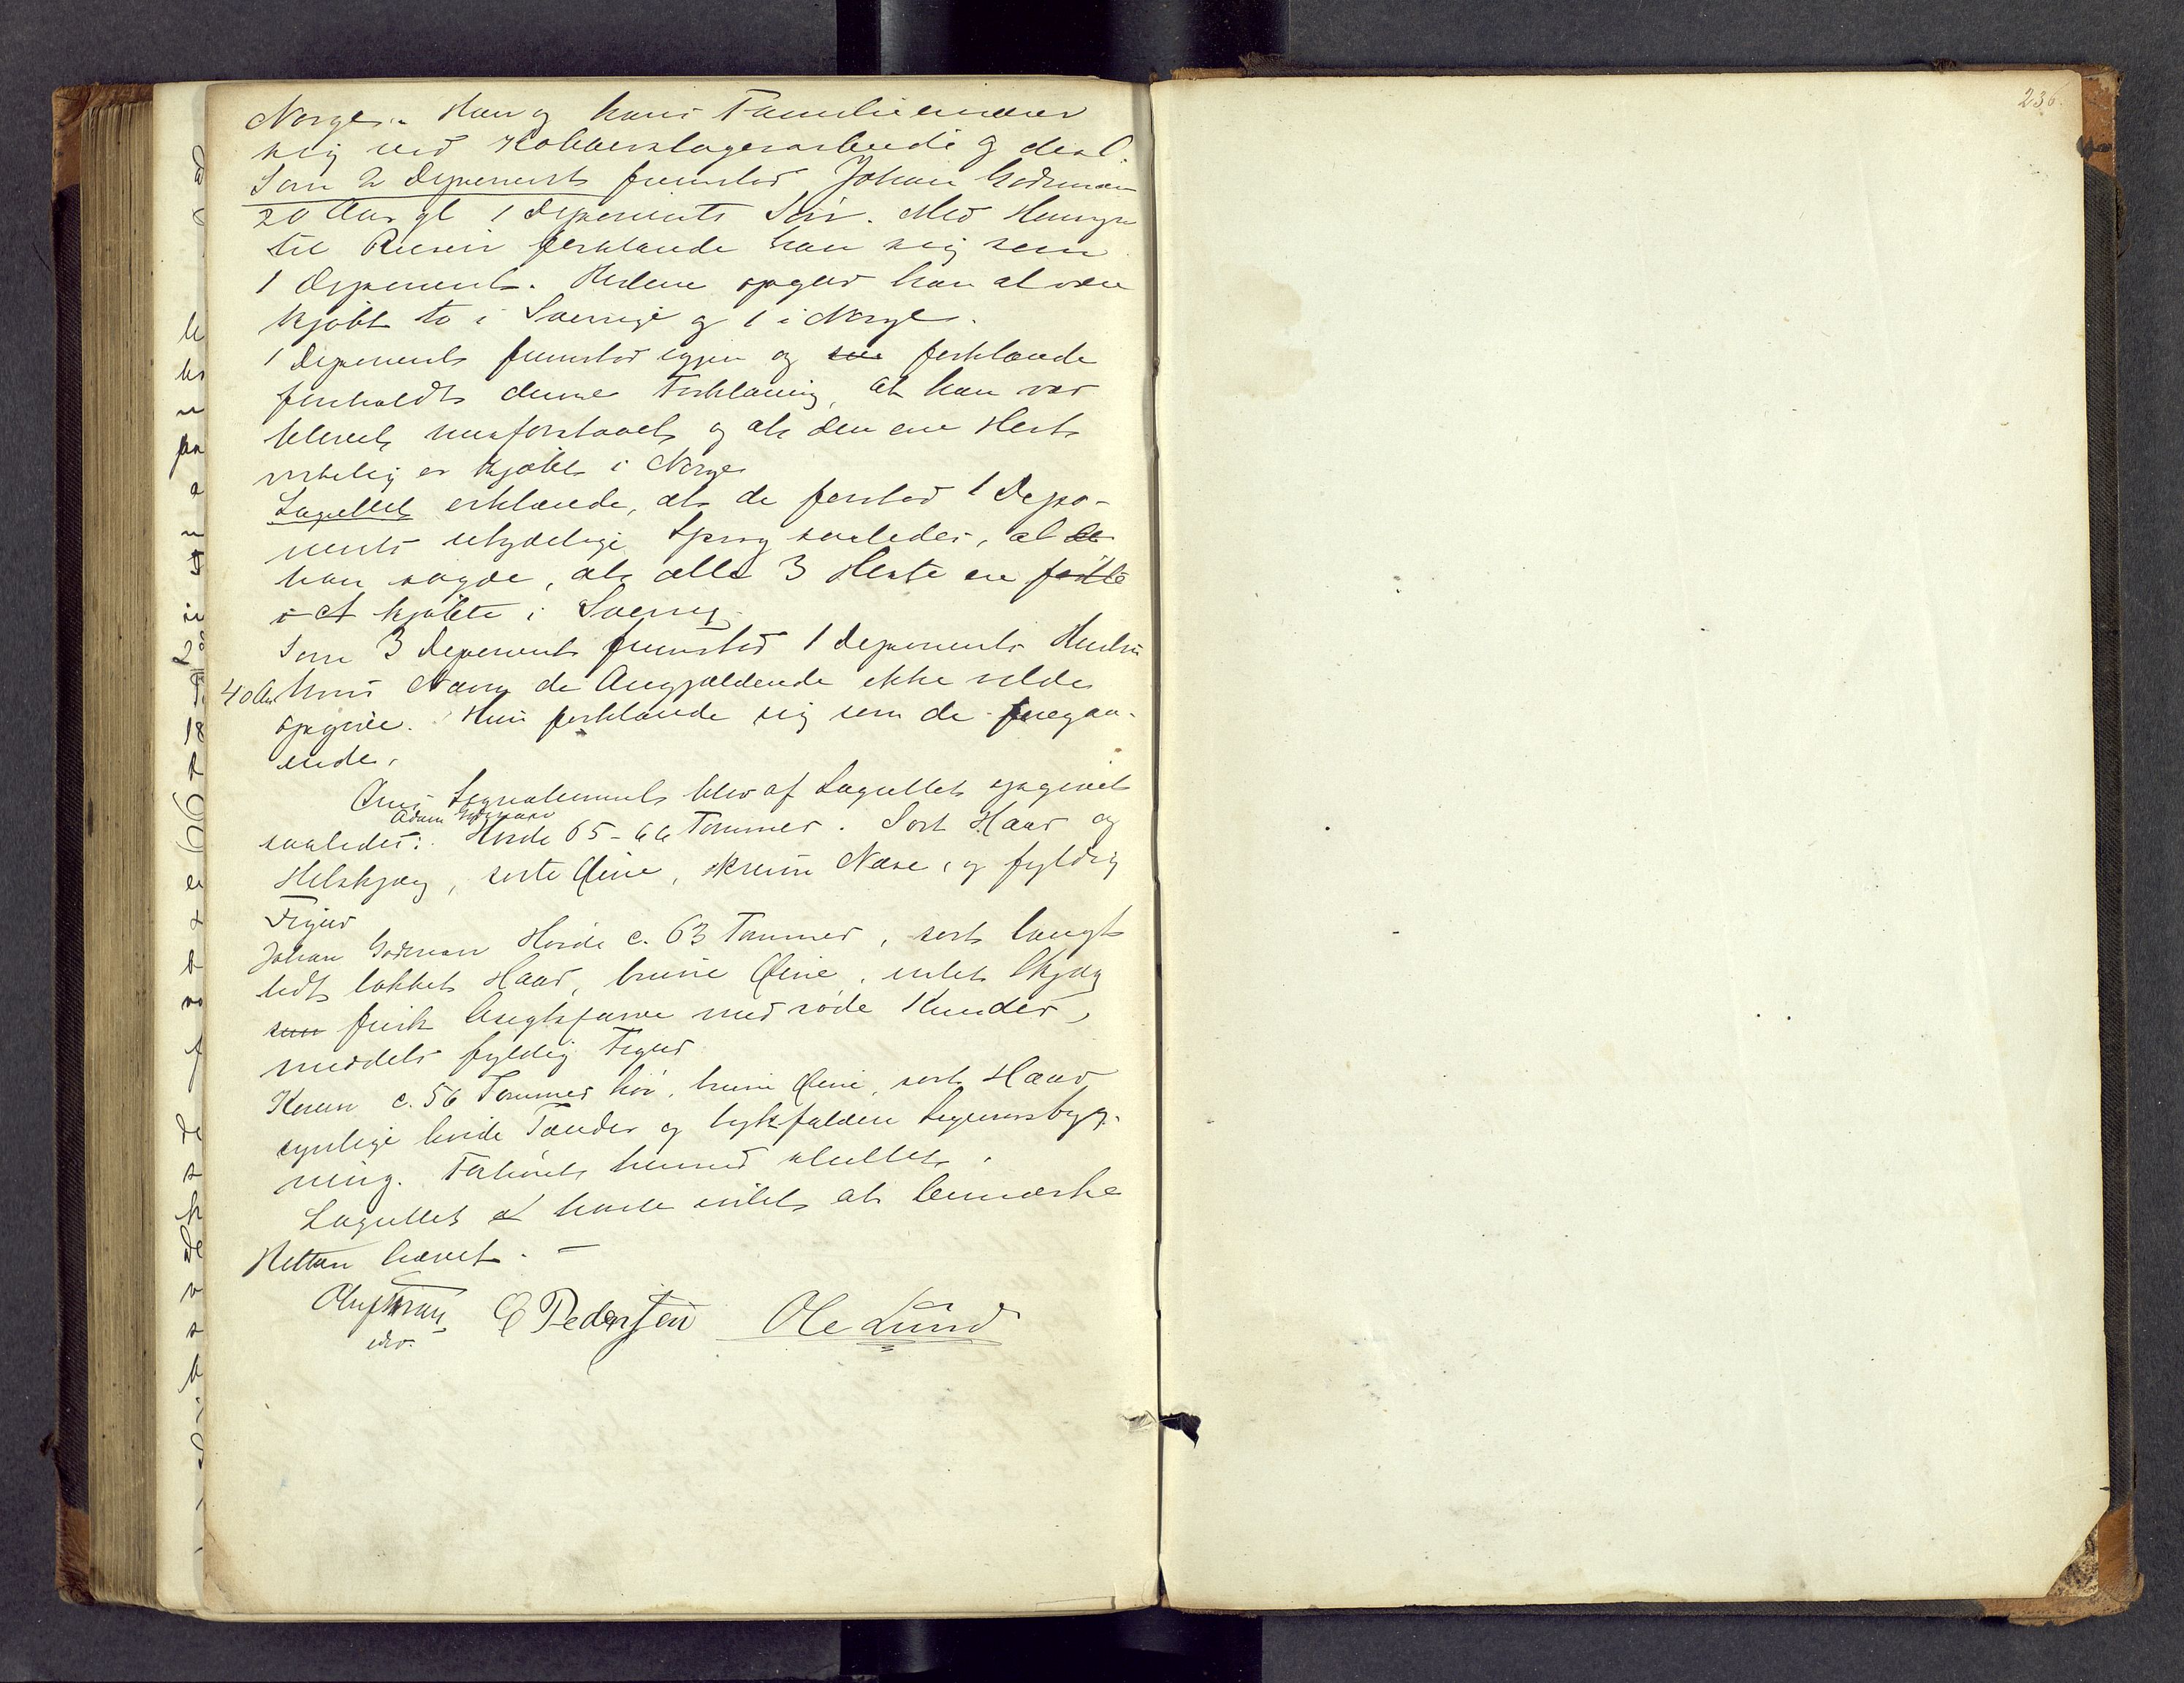 236.
Norge. Han og hans Familie ernærer
sig ved Kobberslagerarbeide og desl.
Som 2 Deponent fremstod Johan Godman
20 Aar gl 1 Deponents Søn. Med Hensyn
til Reisen forklarede han sig som
1 Deponent. Hestene opgav han at være
kjøbt to i Sverrige og 1 i Norge.
1 Deponent fremstod igjen og forklarede
foreholdt denne Forklaring, at han var
blevet misforstaaet og at den ene Hest
virkelig er kjøbt i Norge
Lagrettet erklærede, at de forstod 1 Depo-
nents utydelige Sprog saaledes, at de
han sagde, at alle 3 Heste ere fødte
i et kjøbte i Sverrig
Som 3 Deponent fremstod 1 Deponents Hustru
40 Aar hvis Navn de Angjældende ikke vilde
opgive. Hun forklarede sig som de foregaa-
ende.
Signalement blev af Lagrettet opgivet
Adam Godman
saaledes: Høide 65-66 Tommer. Sort Haar og
Helskjæg, sorte Øine, krum Næse, og fyldig
Figur
Johan Godman Høide c. 63 Tommer, sort langt
lidt lokket Haar, brune Øine, intet Skjæg
frisk Ansigtsfarve med røde Kinder,
middels fyldig Figur
Konen c. 56 Tommer høi, brune Øine, sort Haar
synlige hvide Tænder og tykfalden Legemsbyg-
ning. Forhøret hermed sluttet.
Lagrettet havde intet at bemærke
Retten hævet. —
E Pedersen Ole Lund